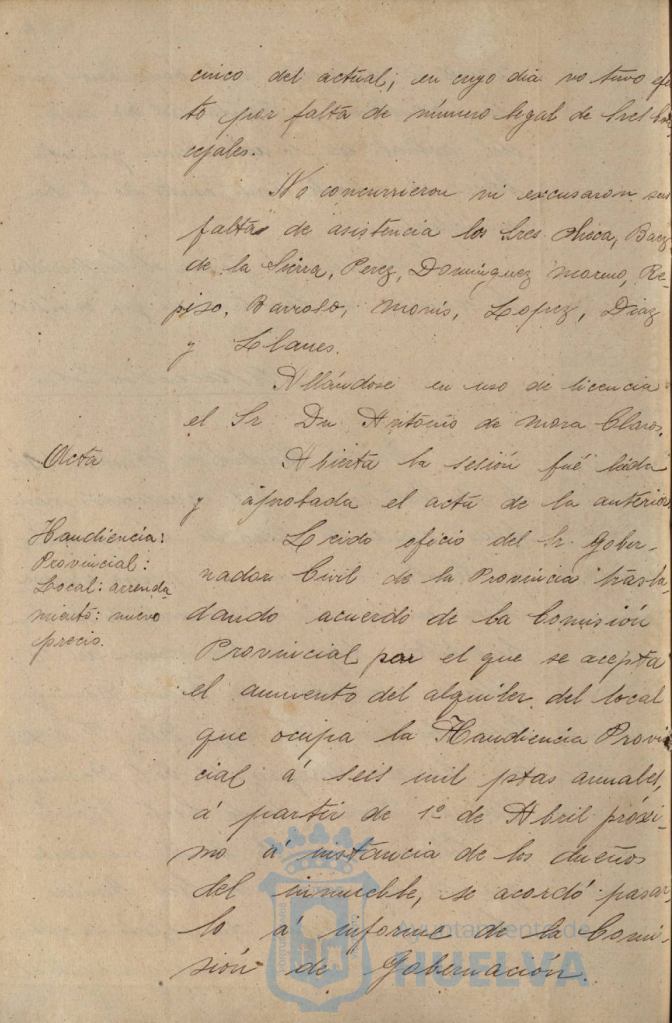 cinco del actual; en cuyo dia no tuvo efe
to por falta de número legal de Sres Con
cejales.
No concurrieron ni excusaron sus
faltas de asistencia los Sres Checa, Baez
de la Sierra, Perez, Dominguez Moreno, Re-
piso, Barroso, Monis, Lopez, Diaz
y Llanes.
Allándose en uso de licencia
el Sr Dn Antonio de Mora Claros.
Acta
Abierta la sesión fué leida
y aprobada el acta de la anterior
Haudiencia:
Provincial:
Local: arrenda
miento: nuevo
precio.
Leido oficio del Sr. Gober-
nador Civil de la Provincia trasla-
dando acuerdo de la Comisión
Provincial por el que se acepta
el aumento del alquiler del local
que ocupa la Haudiencia Provin
cial á seis mil ptas anuales,
á partir de 1º de Abril próxi-
mo á instancia de los dueños
del inmueble, se acordó pasar
lo á informe de la Comi-
sión de Gobernación.
Ayuntamiento de
HUELVA